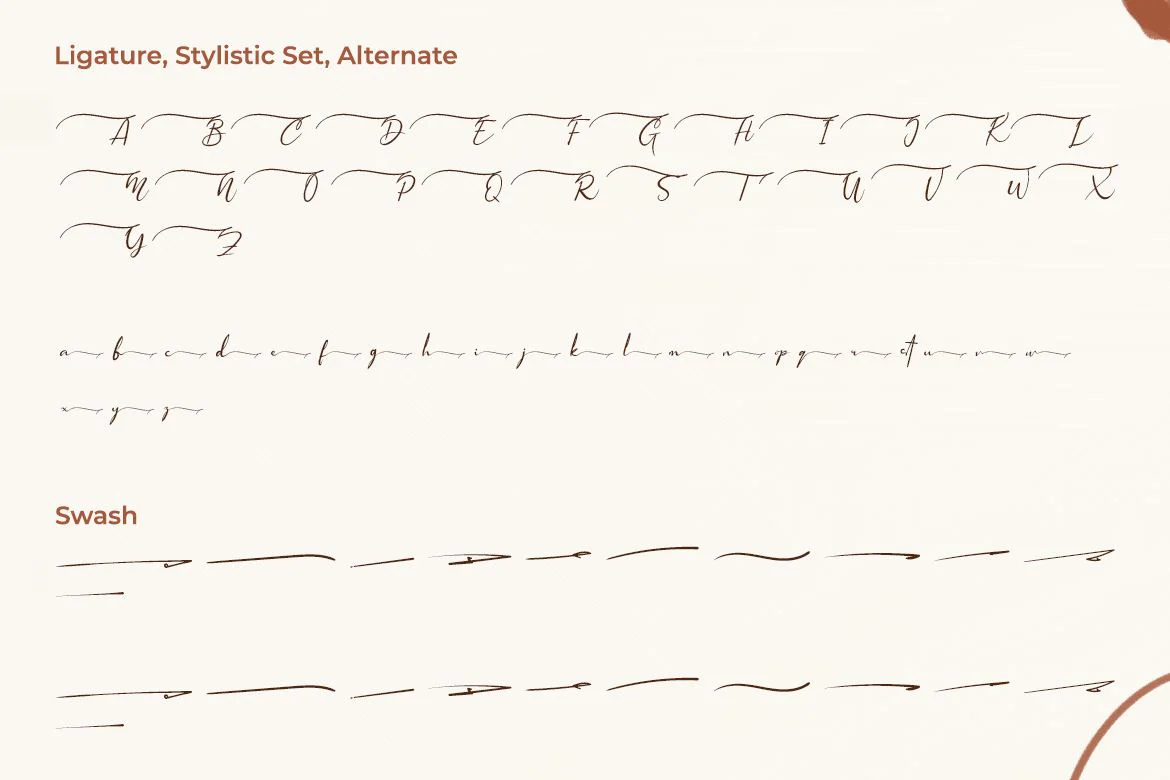 Ligature, Stylistic Set, Alternate
A B C D E F G H I J K L
M N O P Q R S T U V W X
Y Z
a b c d e f g h i j k l m n p q r st u v w
x y z
Swash